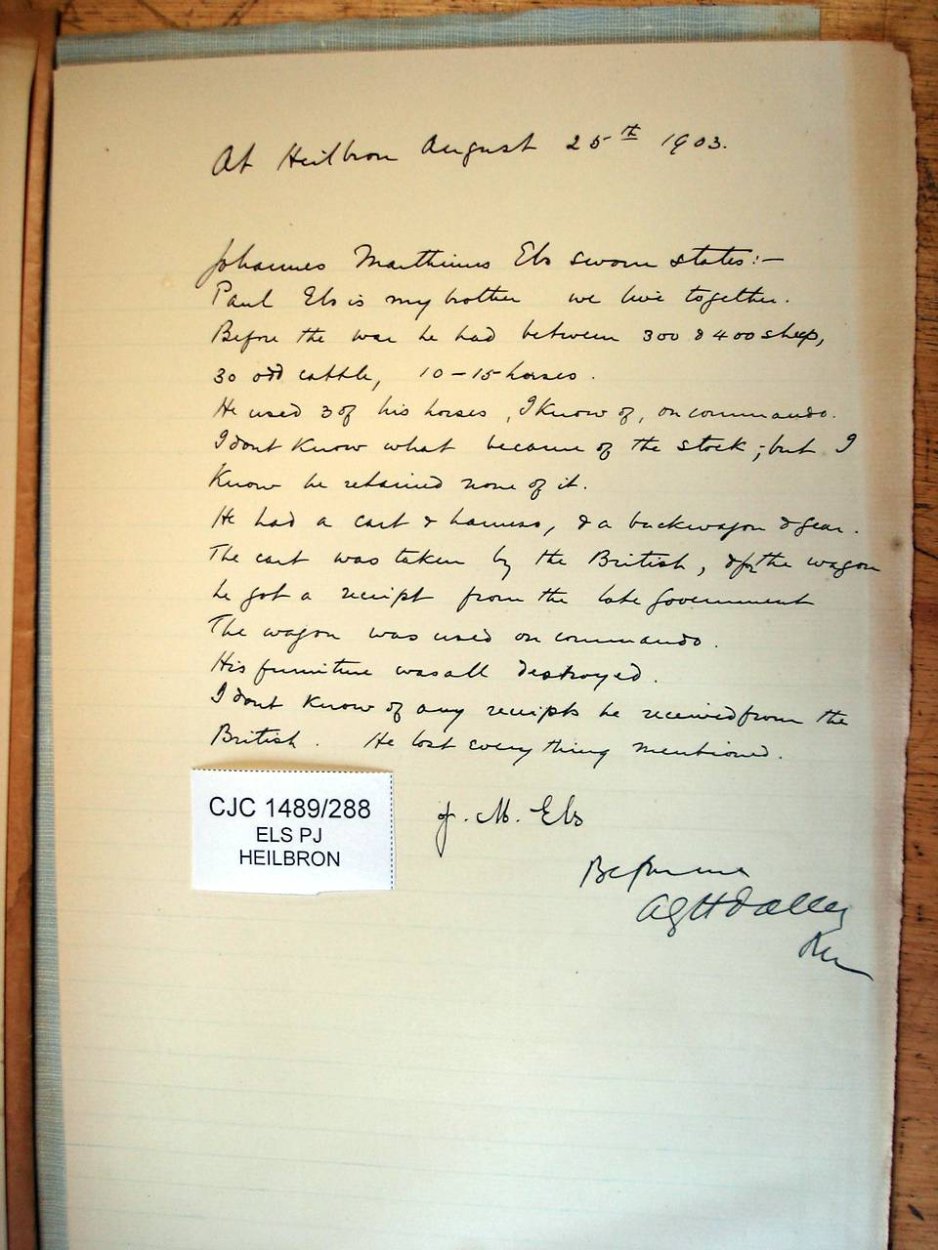 At Heilbron August 25th 1903.
Johannes Marthinus Els sworn states:-
Paul Els is my brother we live together.
Before the war he had between 300 & 400 sheep,
30 odd cattle, 10-15 horses.
He used 3 of his horses, I know of, on commando.
I dont know what became of the stock; but I
know he retained none of it.
He had a cart & harness, & a buckwagon & gear.
The cart was taken by the British, & for the wagon
he got a receipt from the late Government
The wagon was used on commando.
His furniture was all destroyed.
I dont know of any receipts he received from the
British. He lost everything mentioned.
J. M. Els
Before me
CJC 1489/288
ELS PJ
HEILBRON